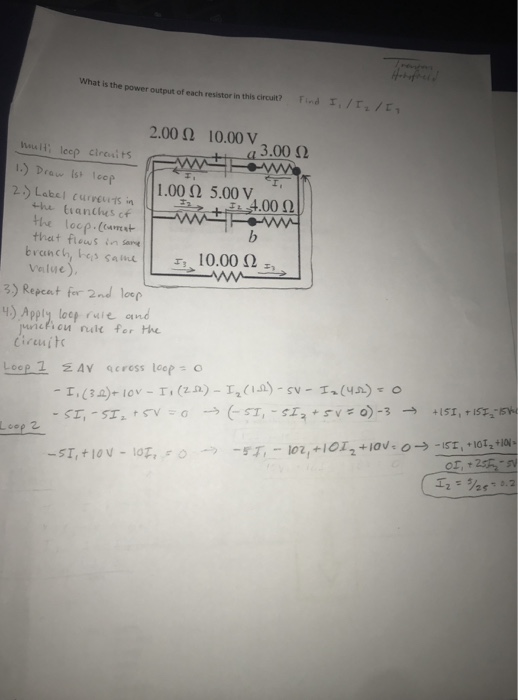 What is the power output of each resistor in this circuit? Find I₁/I₂/I₃
2.00 Ω 10.00 V
a 3.00 Ω
I₁ I₁
1.00 Ω 5.00 V
I₂ I₂ 4.00 Ω
b
10.00 Ω
I₃ I₃
multi loop circuits
1.) Draw 1st loop
2.) Label currents in
the branches of
the loop. (current
that flows in same
branch, has same
value).
3.) Repeat for 2nd loop
4.) Apply loop rule and
junction rule for the
circuits
Loop 1 Σ ΔV across loop = 0
- I₁(3Ω) + 10V - I₁(2Ω) - I₂(1Ω) - 5V - I₂(4Ω) = 0
- 5I₁ - 5I₂ + 5V = 0 → (-5I₁ - 5I₂ + 5V = 0) -3 → +15I₁ + 15I₂ - 15V
Loop 2
-5I₁ + 10V - 10I₃ = 0 → -5I₁ - 10I₁ + 10I₂ + 10V = 0 → -15I₁ + 10I₂ + 10V
0I₁ + 25I₂ - 5V
I₂ = 5/25 = 0.2